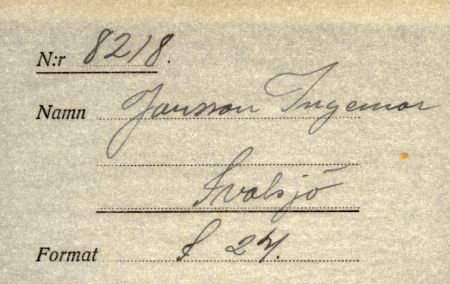 N:r 8218.
Namn Jansson Ingemar
Svalsjö
Format